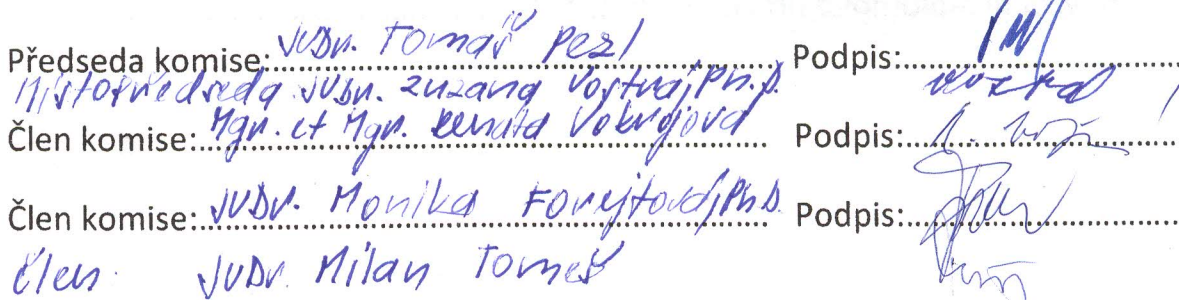 Předseda komise: JUDr. Tomáš Pezl Podpis:
Místopředseda JUDr. Zuzana Vostrá, Ph.D.
Člen komise: Mgr. et Mgr. Renata Vokrojová Podpis:
Člen komise: JUDr. Monika Forejtová, Ph.D. Podpis:
Člen JUDr. Milan Tomeš